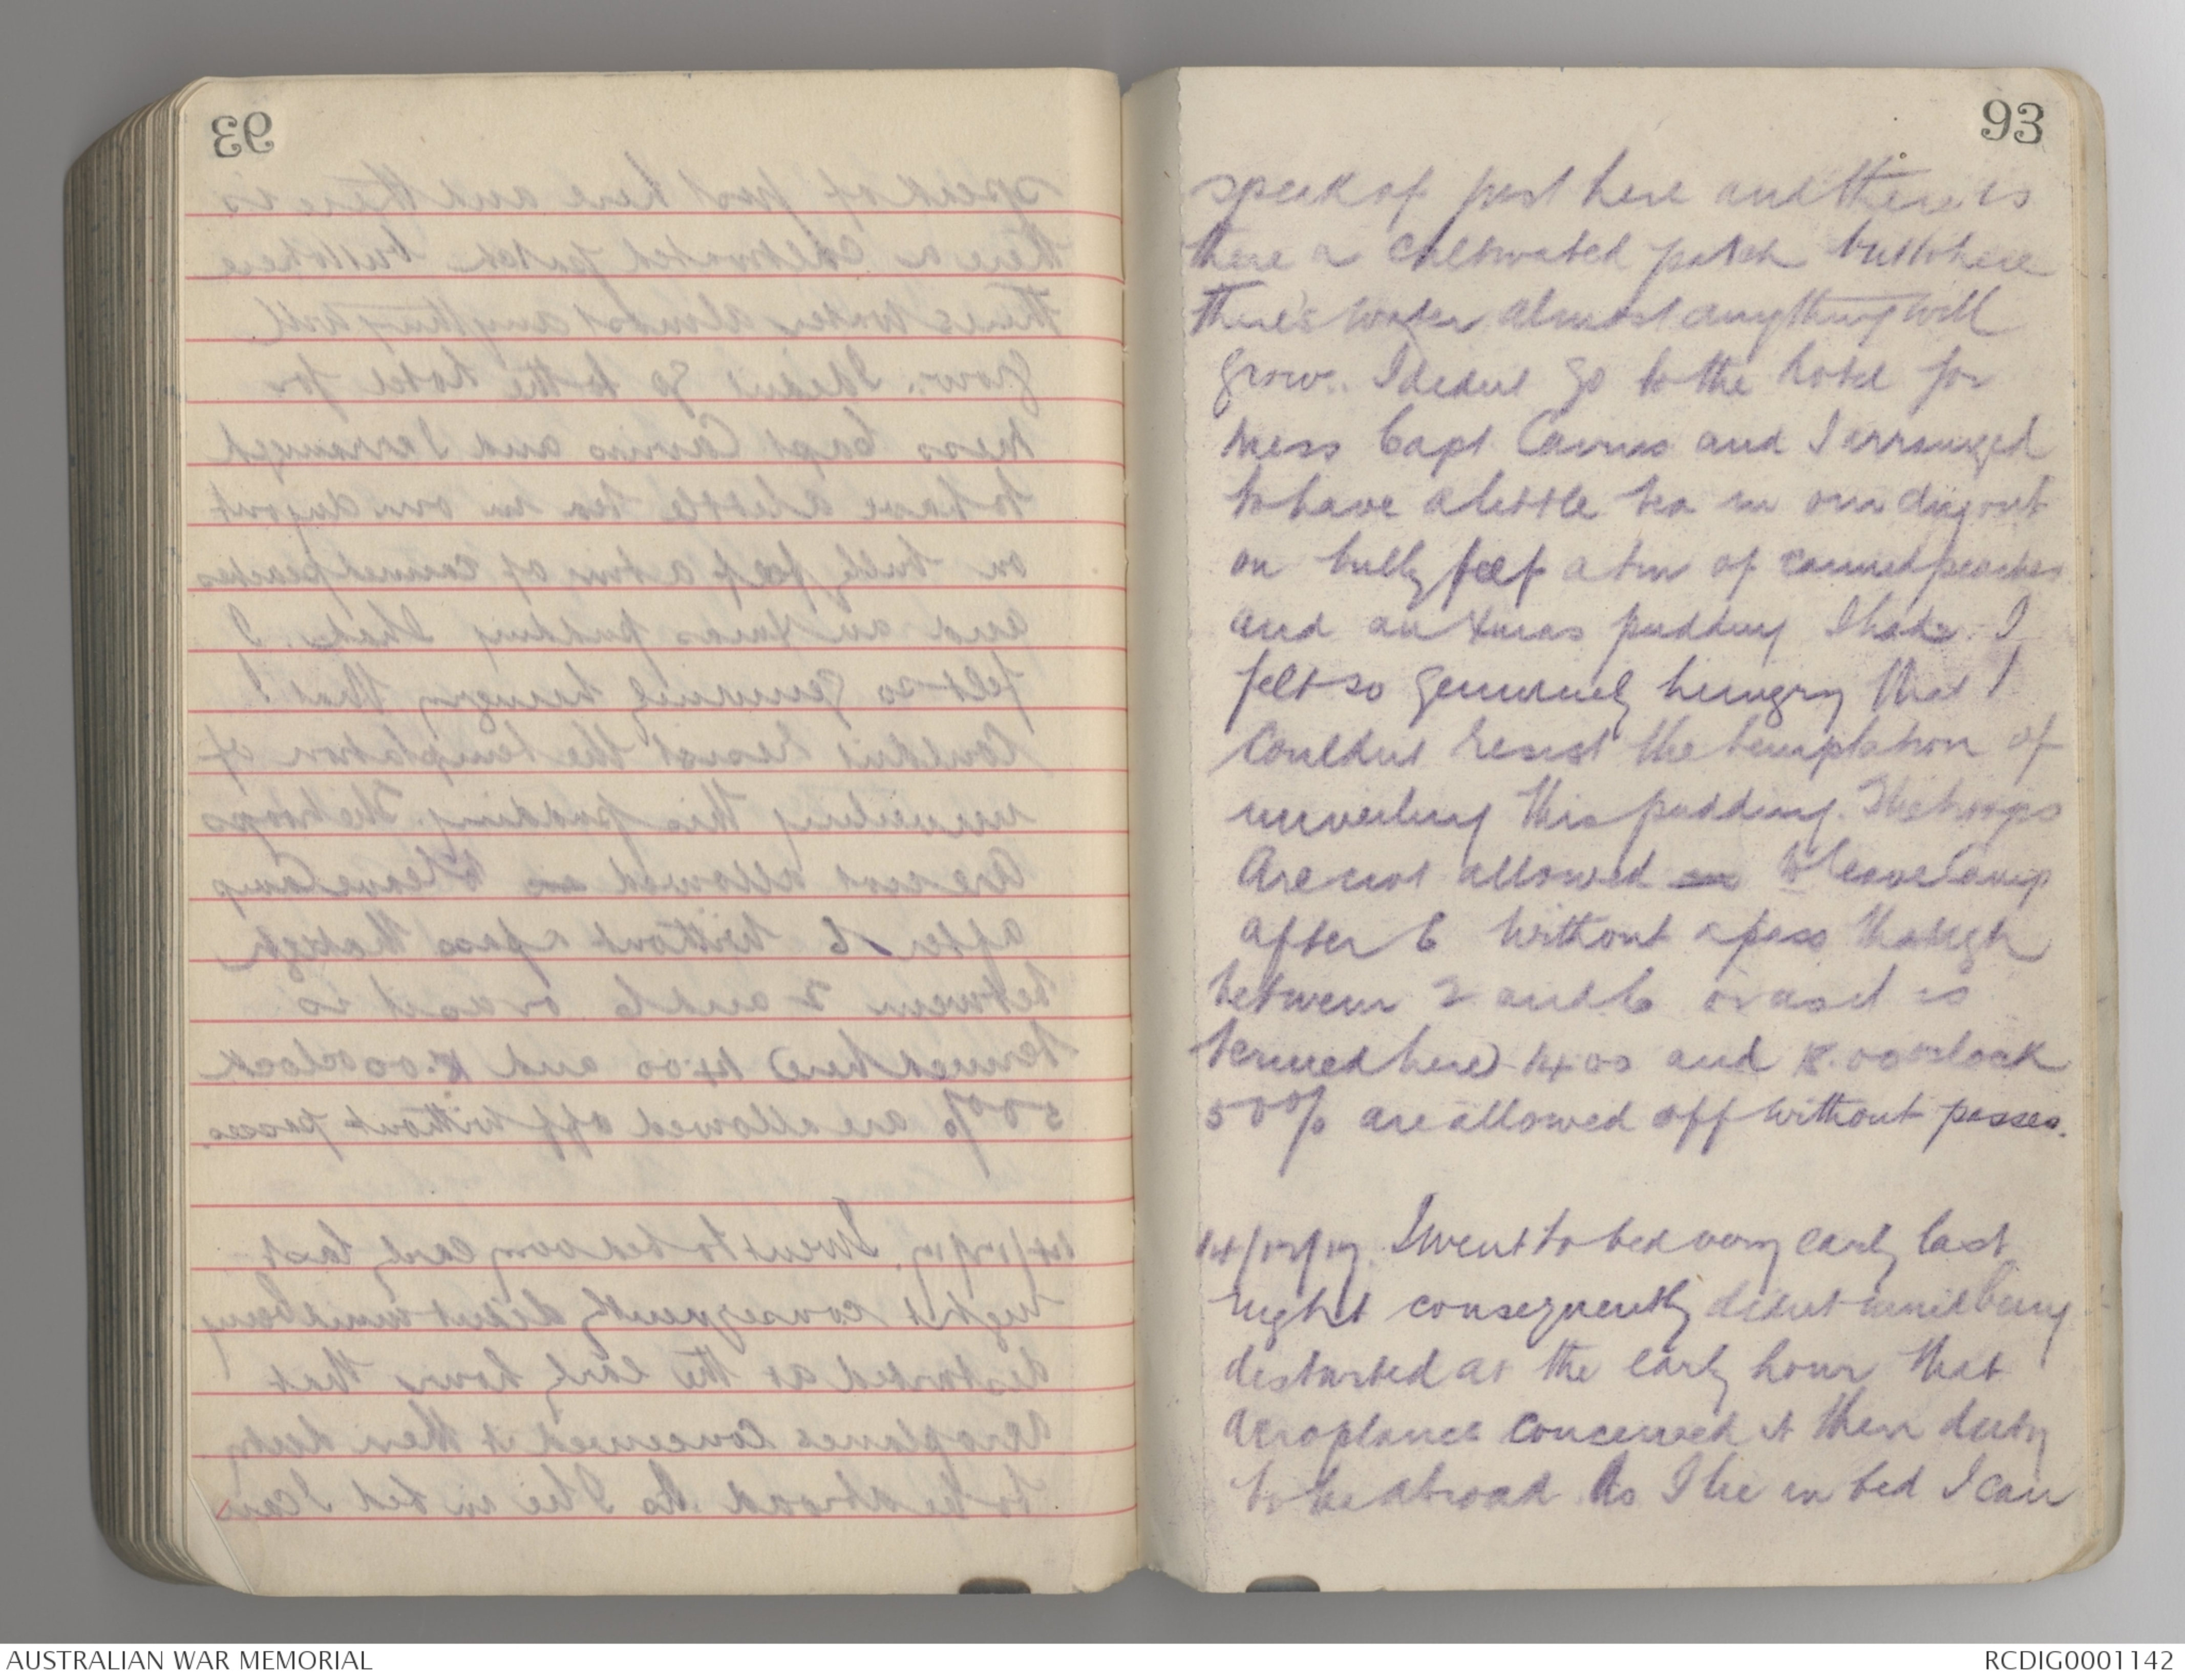 93
93
speak of just here and there is
there a cultivated patch but where
there's water almost anything will
grow. I didnt go to the hotel for
mess Capt Cairns and I arranged
to have a little tea in our dugout
on bully beef a tin of canned peaches
and an Xmas pudding I had. I
felt so genuinely hungry that I
couldnt resist the temptation of
unveiling this pudding. The troops
are not allowed to leave Camp
after 6 without a pass though
between 2 and 6 or as it is
termed here) 14.00 and 18.00 oclock
50% are allowed off without passes.
14/12/17. I went to bed very early last
night consequently didnt mind being
disturbed at the early hour that
aeroplanes concerned it their duty
to be abroad As I lie in bed I can
AUSTRALIAN WAR MEMORIAL
RCDIG0001142